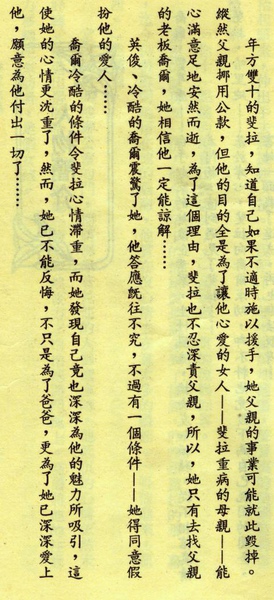 年方雙十的斐拉，知道自己如果不適時施以援手，她父親的事業可能就此毀掉。
縱然父親挪用公款，但他的目的全是為了讓他心愛的女人——斐拉重病的母親——能
心滿意足地安然而逝，為了這個理由，斐拉也不忍深責父親，所以，她只有去找父親
的老板喬爾，她相信他一定能諒解……
英俊、冷酷的喬爾震驚了她，他答應旣往不究，不過有一個條件——她得同意假
扮他的愛人……
喬爾冷酷的條件令斐拉心情滯重，而她發現自己竟也深深為他的魅力所吸引，這
使她的心情更沈重了，然而，她已不能反悔，不只是為了爸爸，更為了她已深深愛上
他，願意為他付出一切了……